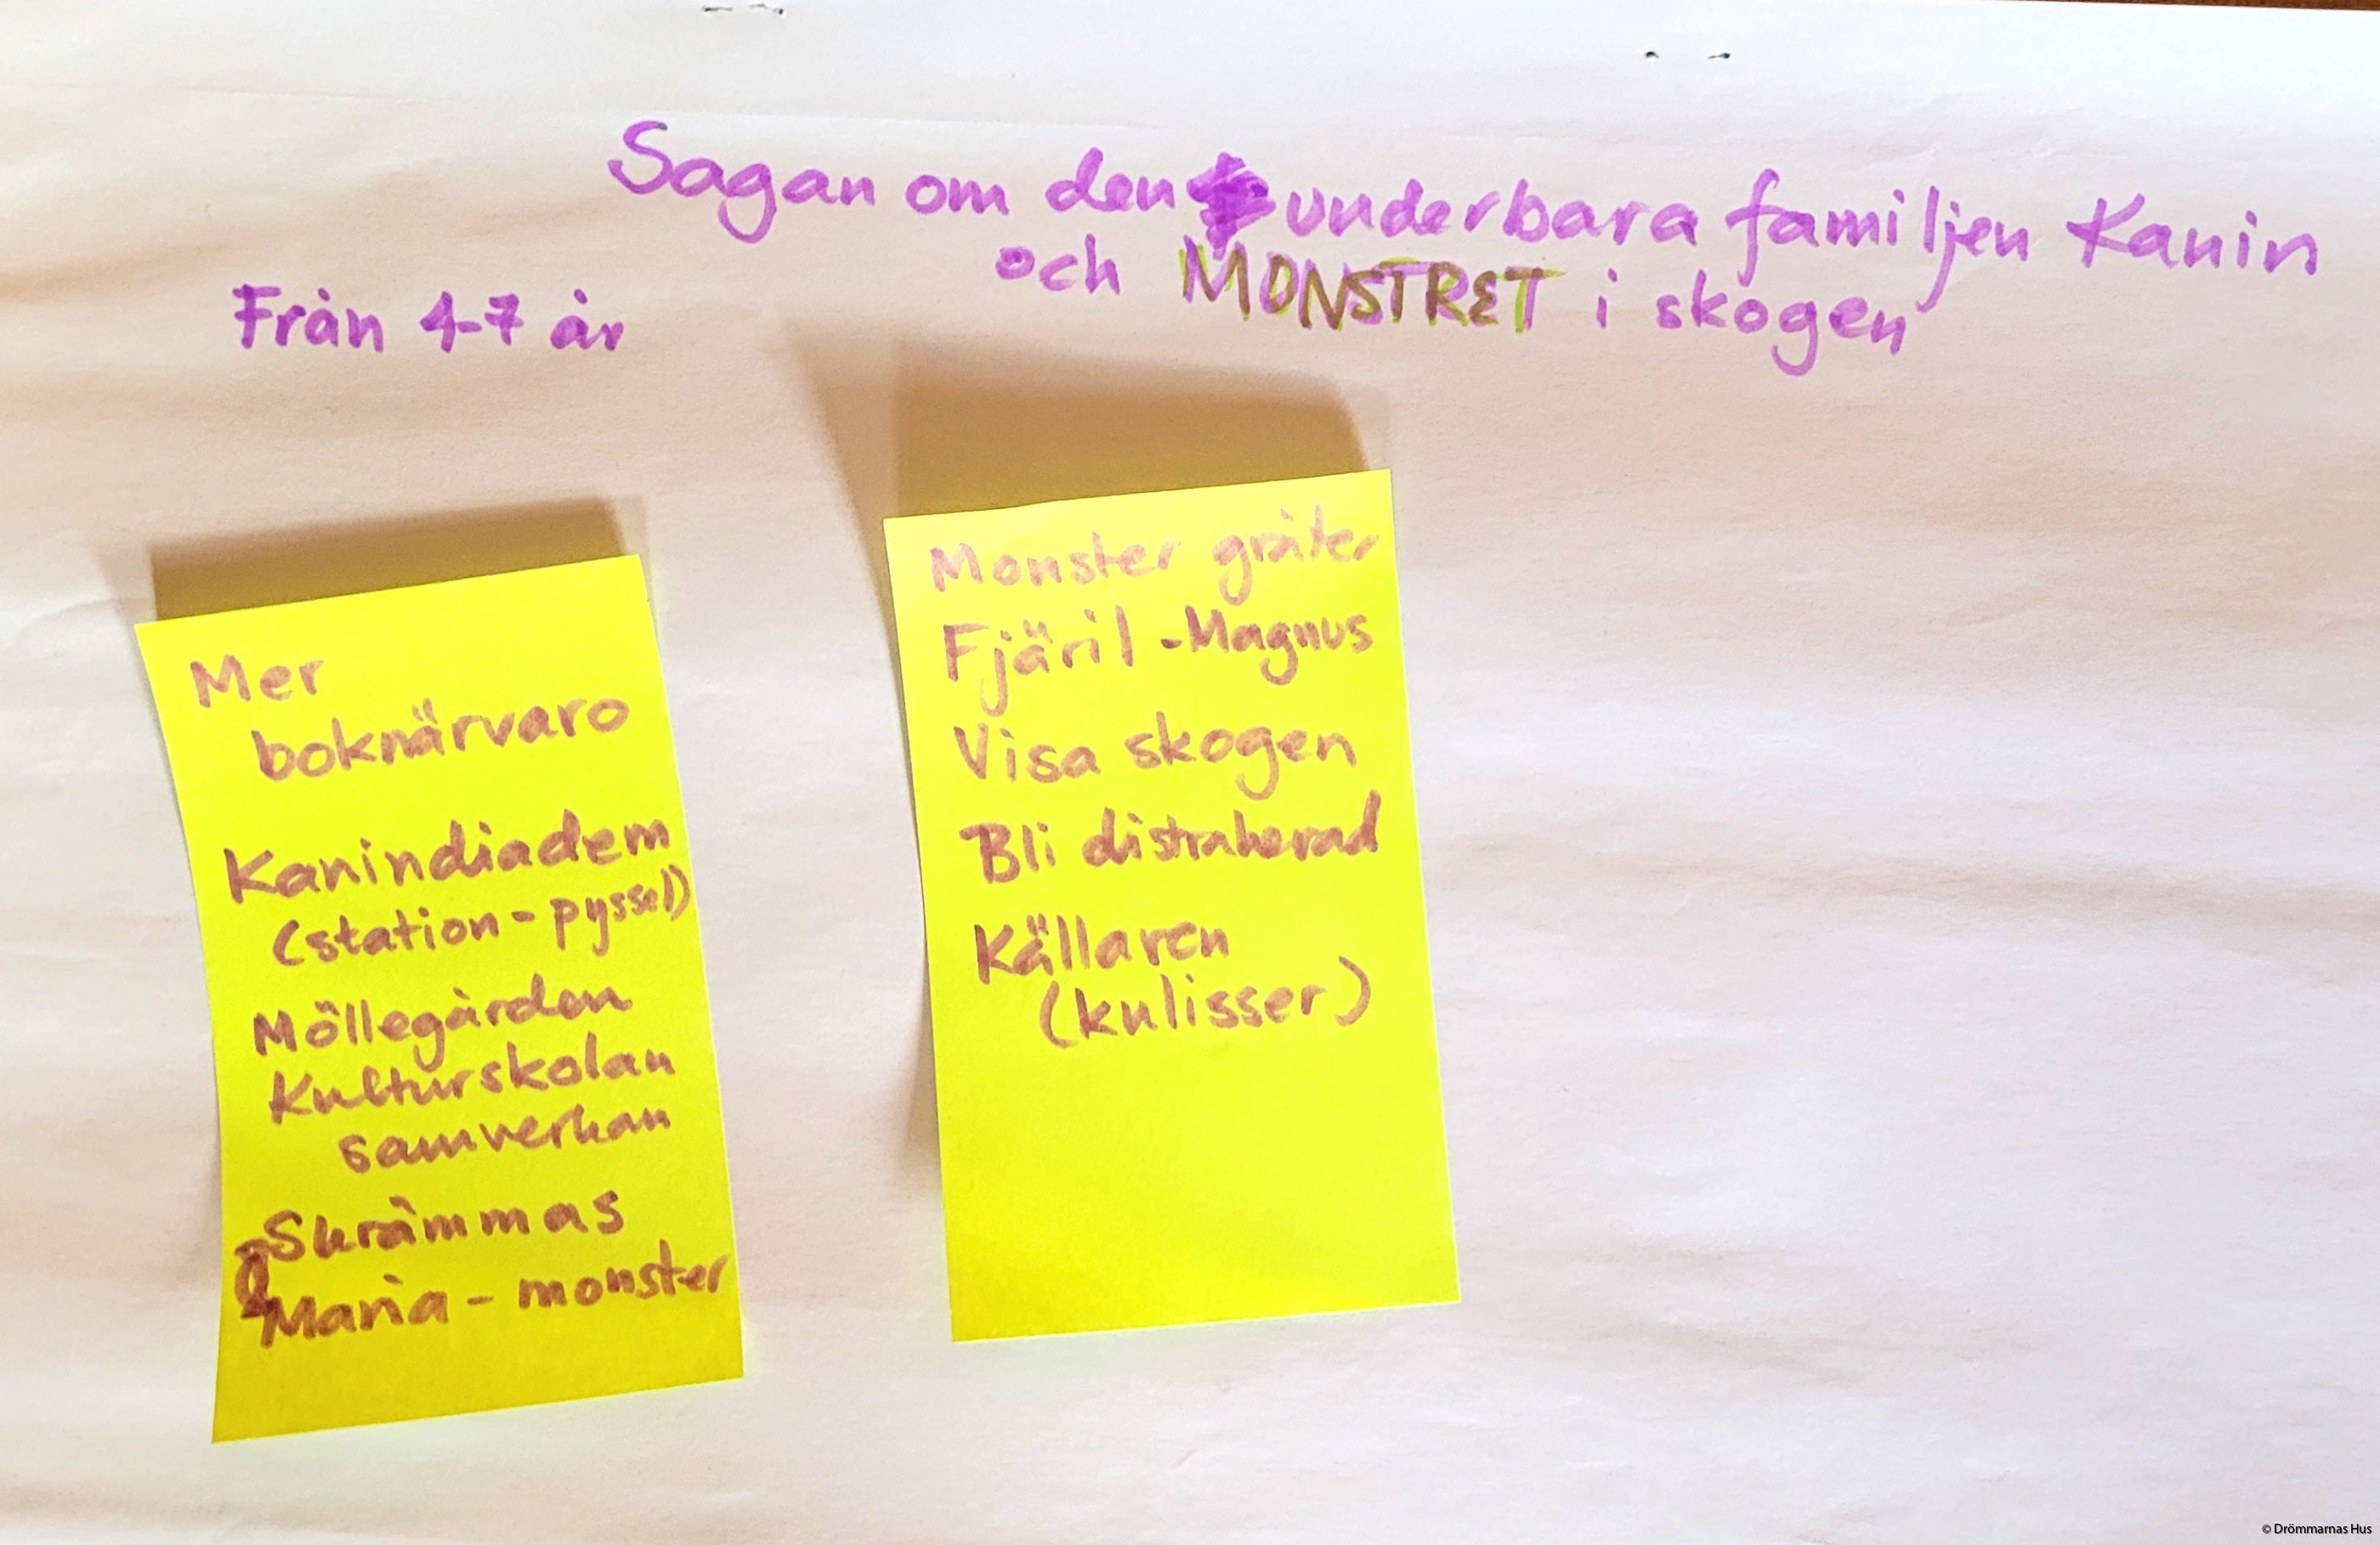 Sagan om den underbara familjen Kanin
och MONSTRET i skogen
Från 4-7 år
Mer
boknärvaro
Kanindiadem
(station - pyssel)
Möllegården
Kulturskolan
samverkan
Skrämmas
Maria - monster
Monster gråter
Fjäril - Magnus
Visa skogen
Bli distraherad
Källaren
(kulisser)
© Drömmarnas Hus